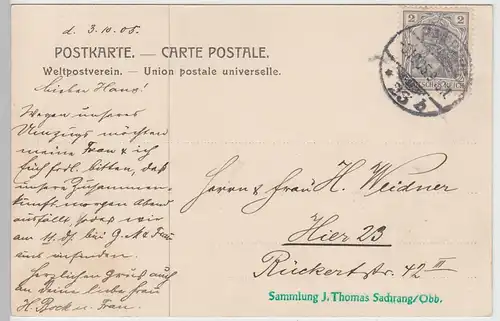 d. 3.10.05.
POSTKARTE. — CARTE POSTALE.
Weltpostverein. — Union postale universelle.
Lieber Hans!
Wegen unseres
Umzugs möchten
meine Frau & ich
Euch frdl. bitten, daß
unsere Zusammen-
kunft morgen Abend
ausfällt, sodaß wir
am 11. ds. bei G. & Frau
uns einfinden.
Herzlichen Gruß auch
an Deine liebe Frau
H. Bock u. Frau.
2 2
DEUTSCHES REICH
* 23 b
Herrn & Frau H. Weidner
Hier 23
Rückertstr. 42 III
Sammlung J. Thomas Sachrang/Obb.